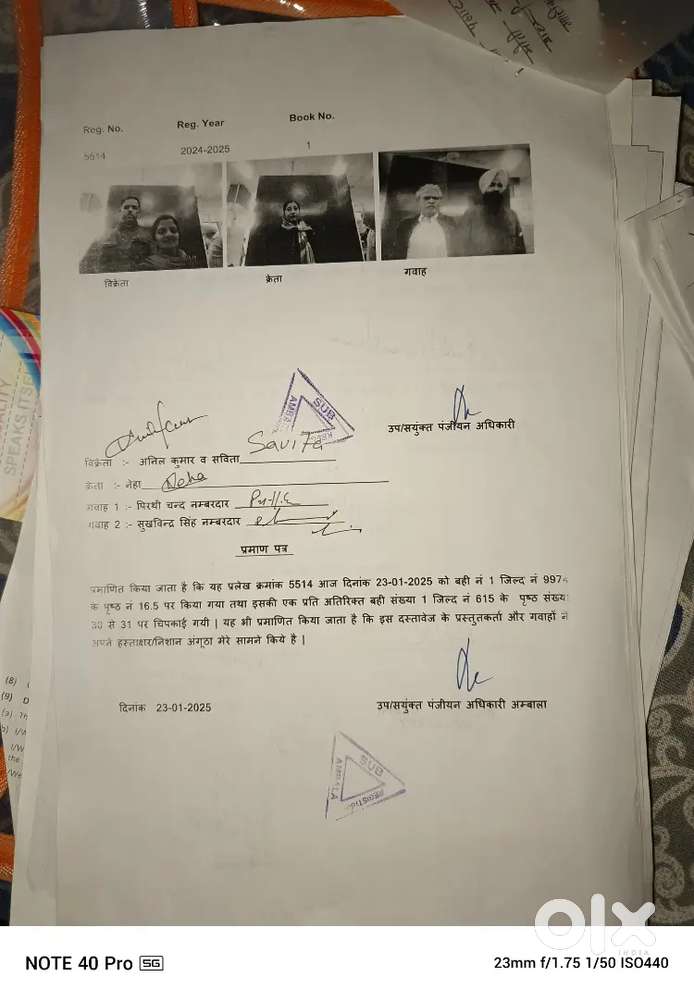 Reg. No. Reg. Year Book No.
5514 2024-2025 1
विक्रेता क्रेता गवाह
SUB
उप/सयुंक्त पंजीयन अधिकारी
Savita
विक्रेता :- अनिल कुमार व सविता
क्रेता :- नेहा Neha
गवाह 1 :- पिरथी चन्द नम्बरदार
गवाह 2 :- सुखविन्द्र सिंह नम्बरदार
प्रमाण पत्र
प्रमाणित किया जाता है कि यह प्रलेख क्रमांक 5514 आज दिनांक 23-01-2025 को बही नं 1 जिल्द नं 9974
के पृष्ठ नं 16.5 पर किया गया तथा इसकी एक प्रति अतिरिक्त बही संख्या 1 जिल्द नं 615 के पृष्ठ संख्या
30 से 31 पर चिपकाई गयी | यह भी प्रमाणित किया जाता है कि इस दस्तावेज के प्रस्तुतकर्ता और गवाहों ने
अपने हस्ताक्षर/निशान अंगूठा मेरे सामने किये है |
दिनांक 23-01-2025 उप/सयुंक्त पंजीयन अधिकारी अम्बाला
SUB
AMBALA
SPEAKS ITS
(8)
(9)
olx
INDIA
NOTE 40 Pro 5G
23mm f/1.75 1/50 ISO440